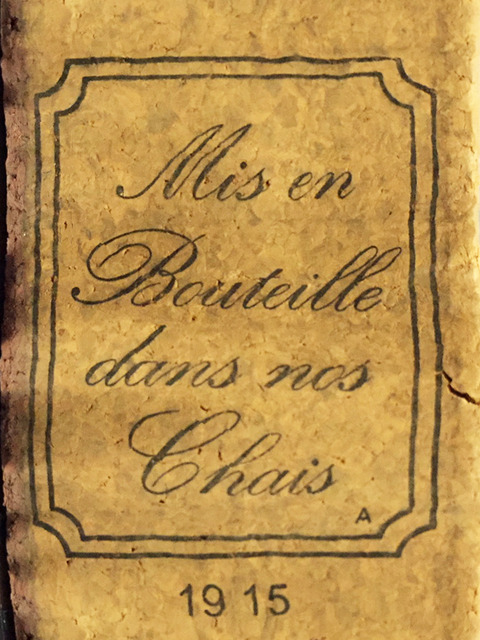 Mis en
Bouteille
dans nos
Chais
A
19 15